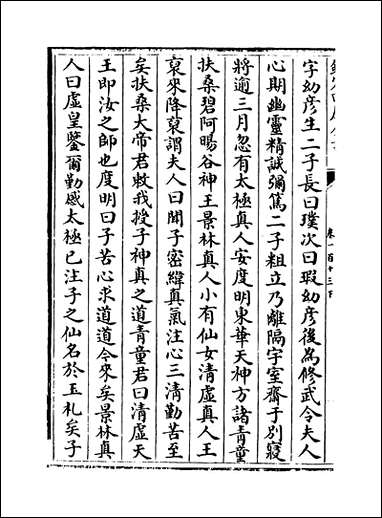 字幼彦生二子長曰璞次曰瑕幼彦後為修武令夫人
心期幽靈精誠彌篤二子粗立乃離隔宇室齋于别寢
將逾三月忽有太極真人安度明東華大神方諸青童
扶桑碧阿暘谷神王景林真人小有仙女清虛真人王
裒來降裒謂夫人曰聞子密緯真氣注心三清勤苦至
矣扶桑大帝君敕我授子神真之道青童君曰清虛天
王即汝之師也度明曰子苦心求道道今來矣景林真
人曰虛皇鑒爾勤感太極已注子之仙名於玉札矣子
卷一百十三下